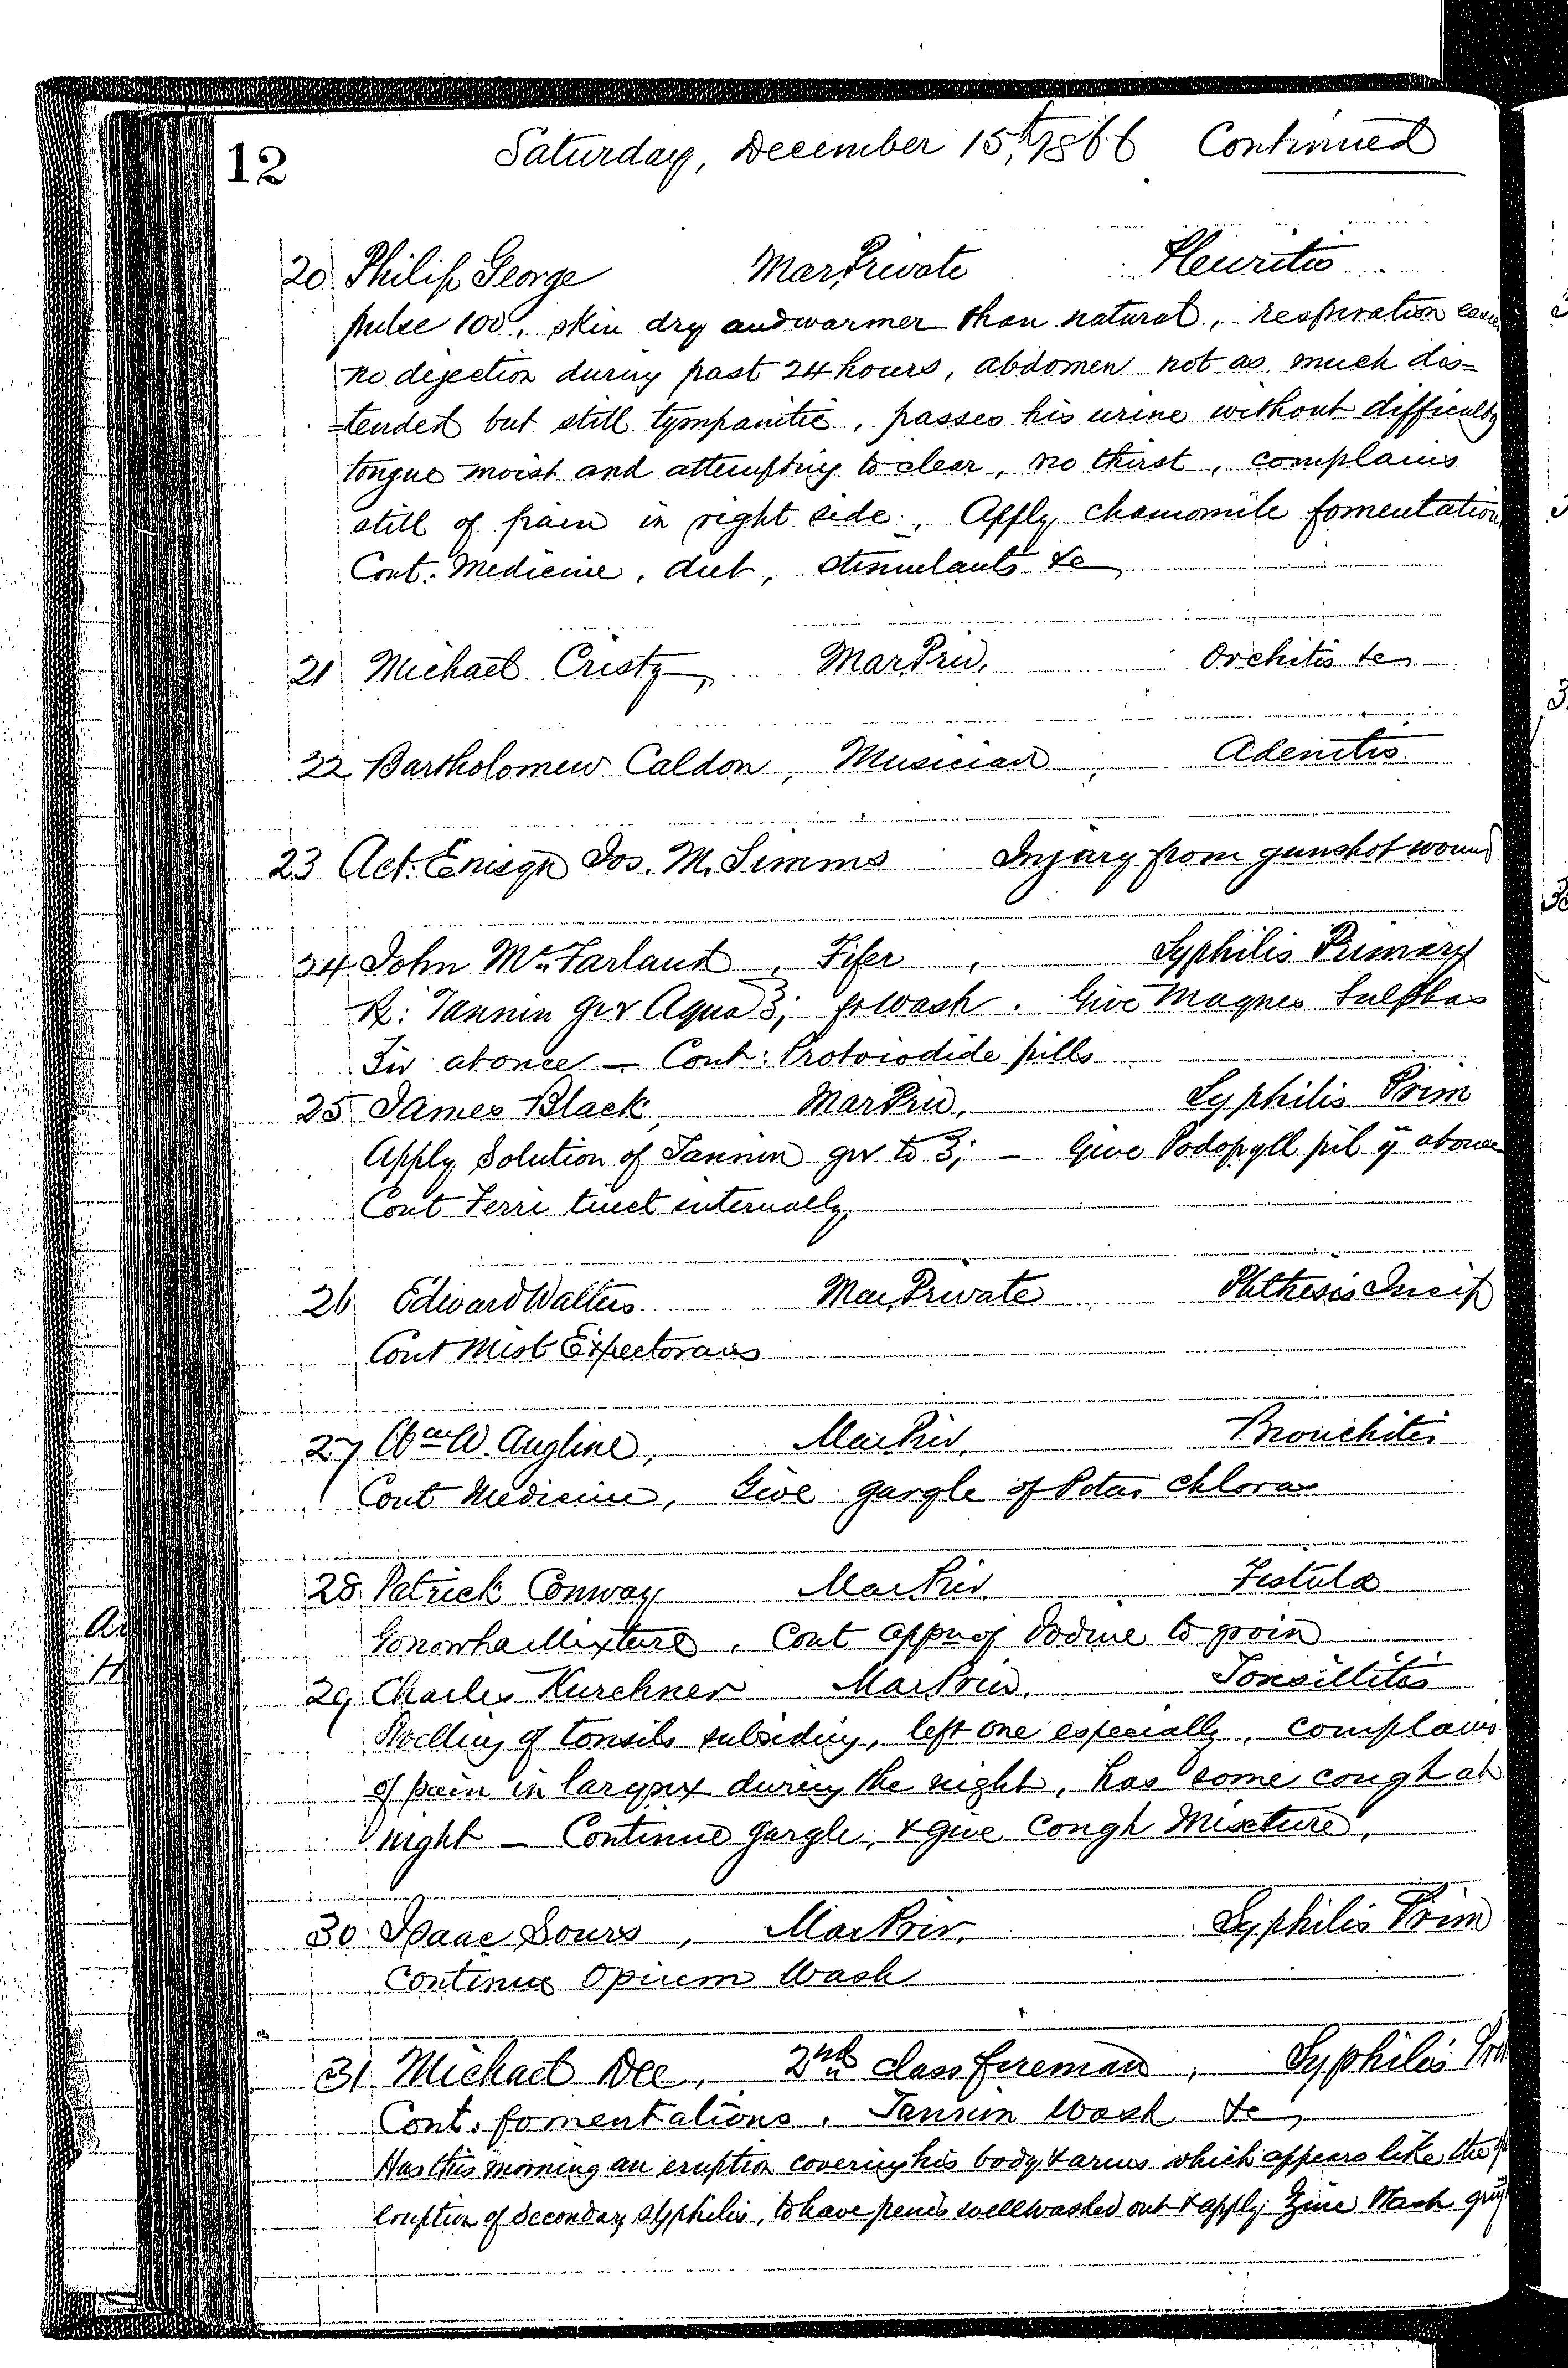 12
Saturday, December 15th, 1866 Continued
20 Philip George Mar. Private Pleuritis
pulse 100, skin dry and warmer than natural, respiration easier
no dejection during past 24 hours, abdomen not as much dis=
=tended but still tympanitic, passes his urine without difficulty
tongue moist and attempting to clear, no thirst, complains
still of pain in right side, Apply chamomile fomentation
Cont. Medicine, diet, stimulants &c
21 Michael Cristy, Mar. Priv. Orchitis &c
22 Bartholomew Caldon, Musician, Adenitis
23 Act. Ensign Jos. M. Simms Injury from gunshot wound
24 John McFarland, Fifer, Syphilis Primary
℞: Tannin gr v Aqua ℥j for wash. Give Magnes Sulphas
at once — Cont: Protoiodide pills
25 James Black, Mar Priv, Syphilis Prim
Apply Solution of Tannin gr v to ℥j — Give Podophyll pil ij at once
Cont Ferri tinct internally,
26 Edward Walters Mar. Private Phthisis Incip
Cont Mist Expectorans
27 Wm W. Angline, Mar Priv. Bronchitis
Cont Medicine, Give gargle of Potas Chloras
28 Patrick Conway Mar Priv. Fistula
Gonorrhea Mixture, Cont appn of Iodine to groin
29 Charles Kurchner Mar. Priv. Tonsillitis
Swelling of tonsils subsiding, left one especially, complains
of pain in larynx during the night, has some cough at
night — Continue gargle, & give Cough Mixture,
30 Isaac Sours, Mar Priv. Syphilis Prim
Continue Opium Wash
31 Michael Dee, 2nd class fireman, Syphilis Pri
Cont. fomentations, Tannin Wash &c,
Has this morning an eruption covering his body & arms which appears like the
eruption of secondary syphilis, to have penis well washed out & apply Zinc Wash